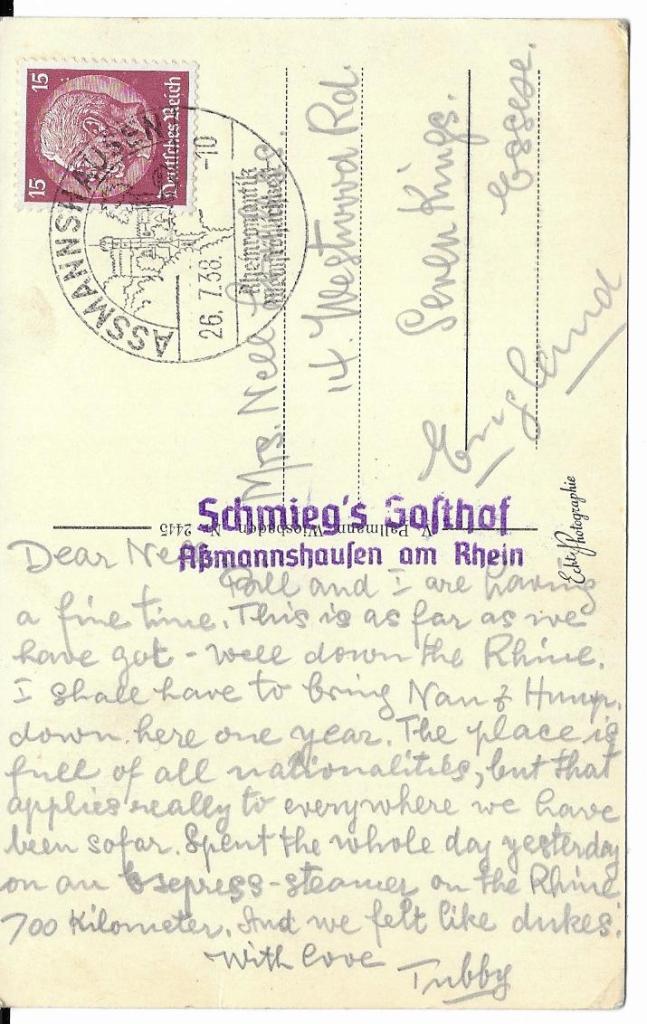 15
15
Deutsches Reich
ASSMANNSHAUSEN
26.7.38.-10
Rheinromantik
Mrs. Nell
14. Westwood Rd.
Seven Kings.
Essex.
England
Schmieg's Gasthof
Aßmannshausen am Rhein
V. Pallmann Wiesbaden N. 2445
Echte Photographie
Dear Nell
Bill and I are having
a fine time. This is as far as we
have got - well down the Rhine.
I shall have to bring Nan & Hump.
down here one year. The place is
full of all nationalities, but that
applies really to everywhere we have
been sofar. Spent the whole day yesterday
on an express-steamer on the Rhine
700 Kilometer. And we felt like dukes.
With love
Tubby